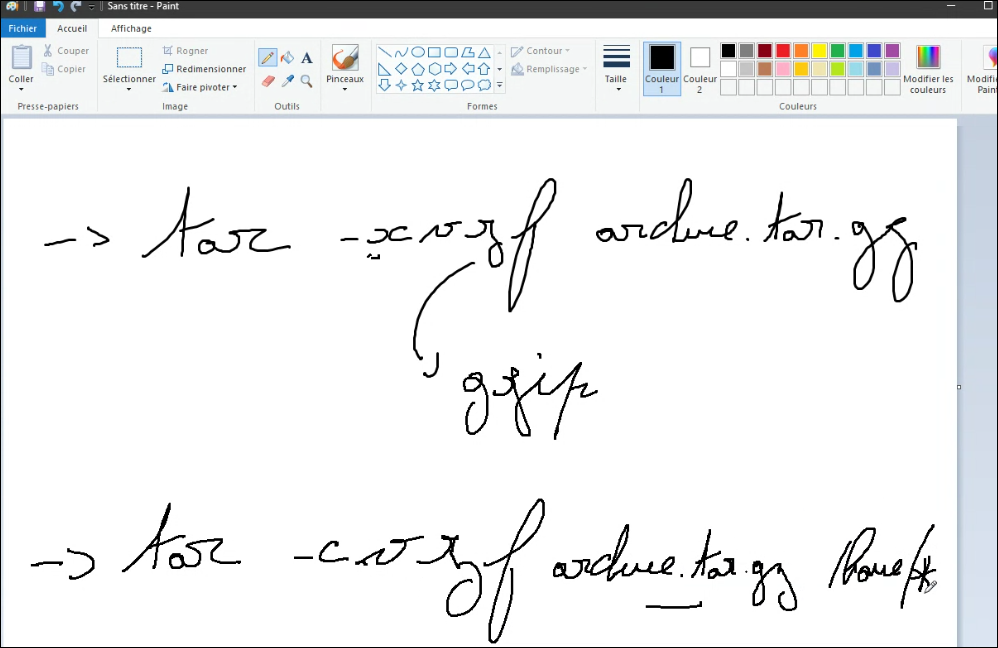 Sans titre - Paint
Fichier Accueil Affichage
Coller
Couper
Copier
Presse-papiers
Sélectionner
Rogner
Redimensionner
Faire pivoter
Image
A
Outils
Pinceaux
Contour
Remplissage
Formes
Taille
Couleur 1
Couleur 2
Modifier les couleurs
Couleurs
Modifi
Pain
-> tar -xvzf archive.tar.gz
gzip
-> tar -cvzf archive.tar.gz /home/*